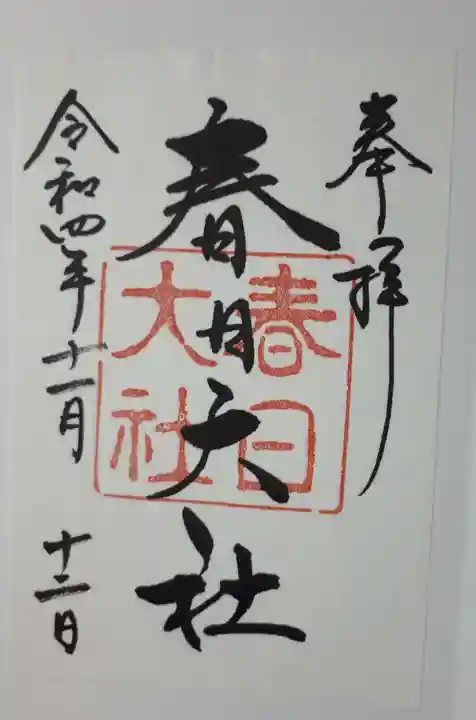 奉拝
春日大社
春日大社
令和四年十一月十二日